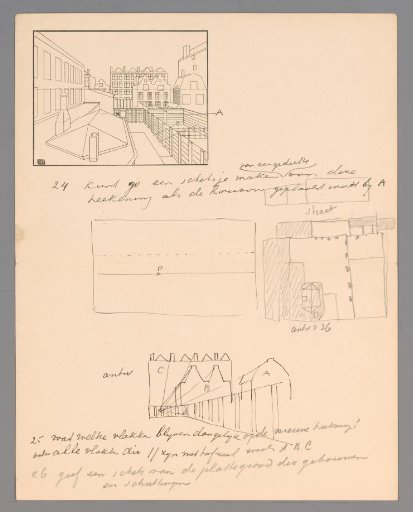 A
van een gedeelte
24 kunt ge een schetsje maken van deze
teekening als de horizon geplaatst wordt bij A
Straat
antw 26
antw
C
B
A
25 wat welke vlakken blijven dezelfde op de nieuwe teekening?
antw alle vlakken die // zyn met tafreel zooals A B C
26 geef een schets van de plattegrond der gebouwen
en schuttingen